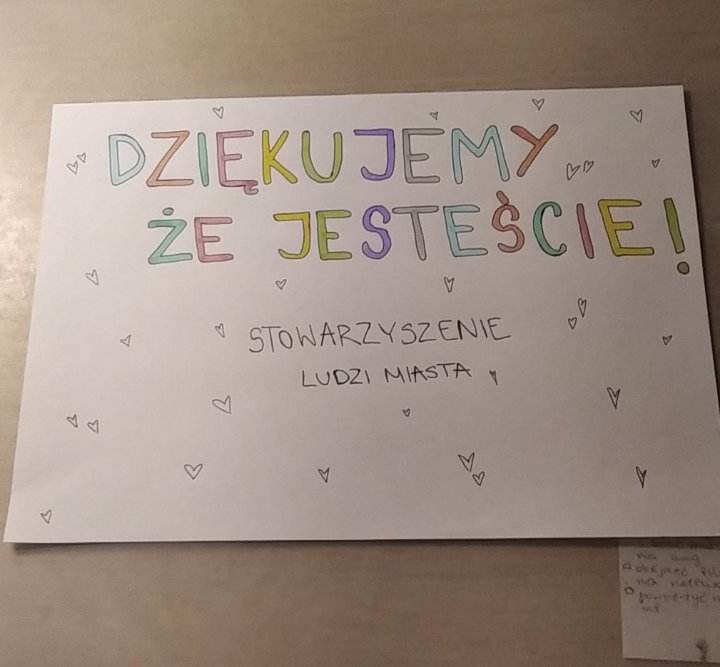 DZIĘKUJEMY
ŻE JESTEŚCIE!
STOWARZYSZENIE
LUDZI MIASTA
na
na